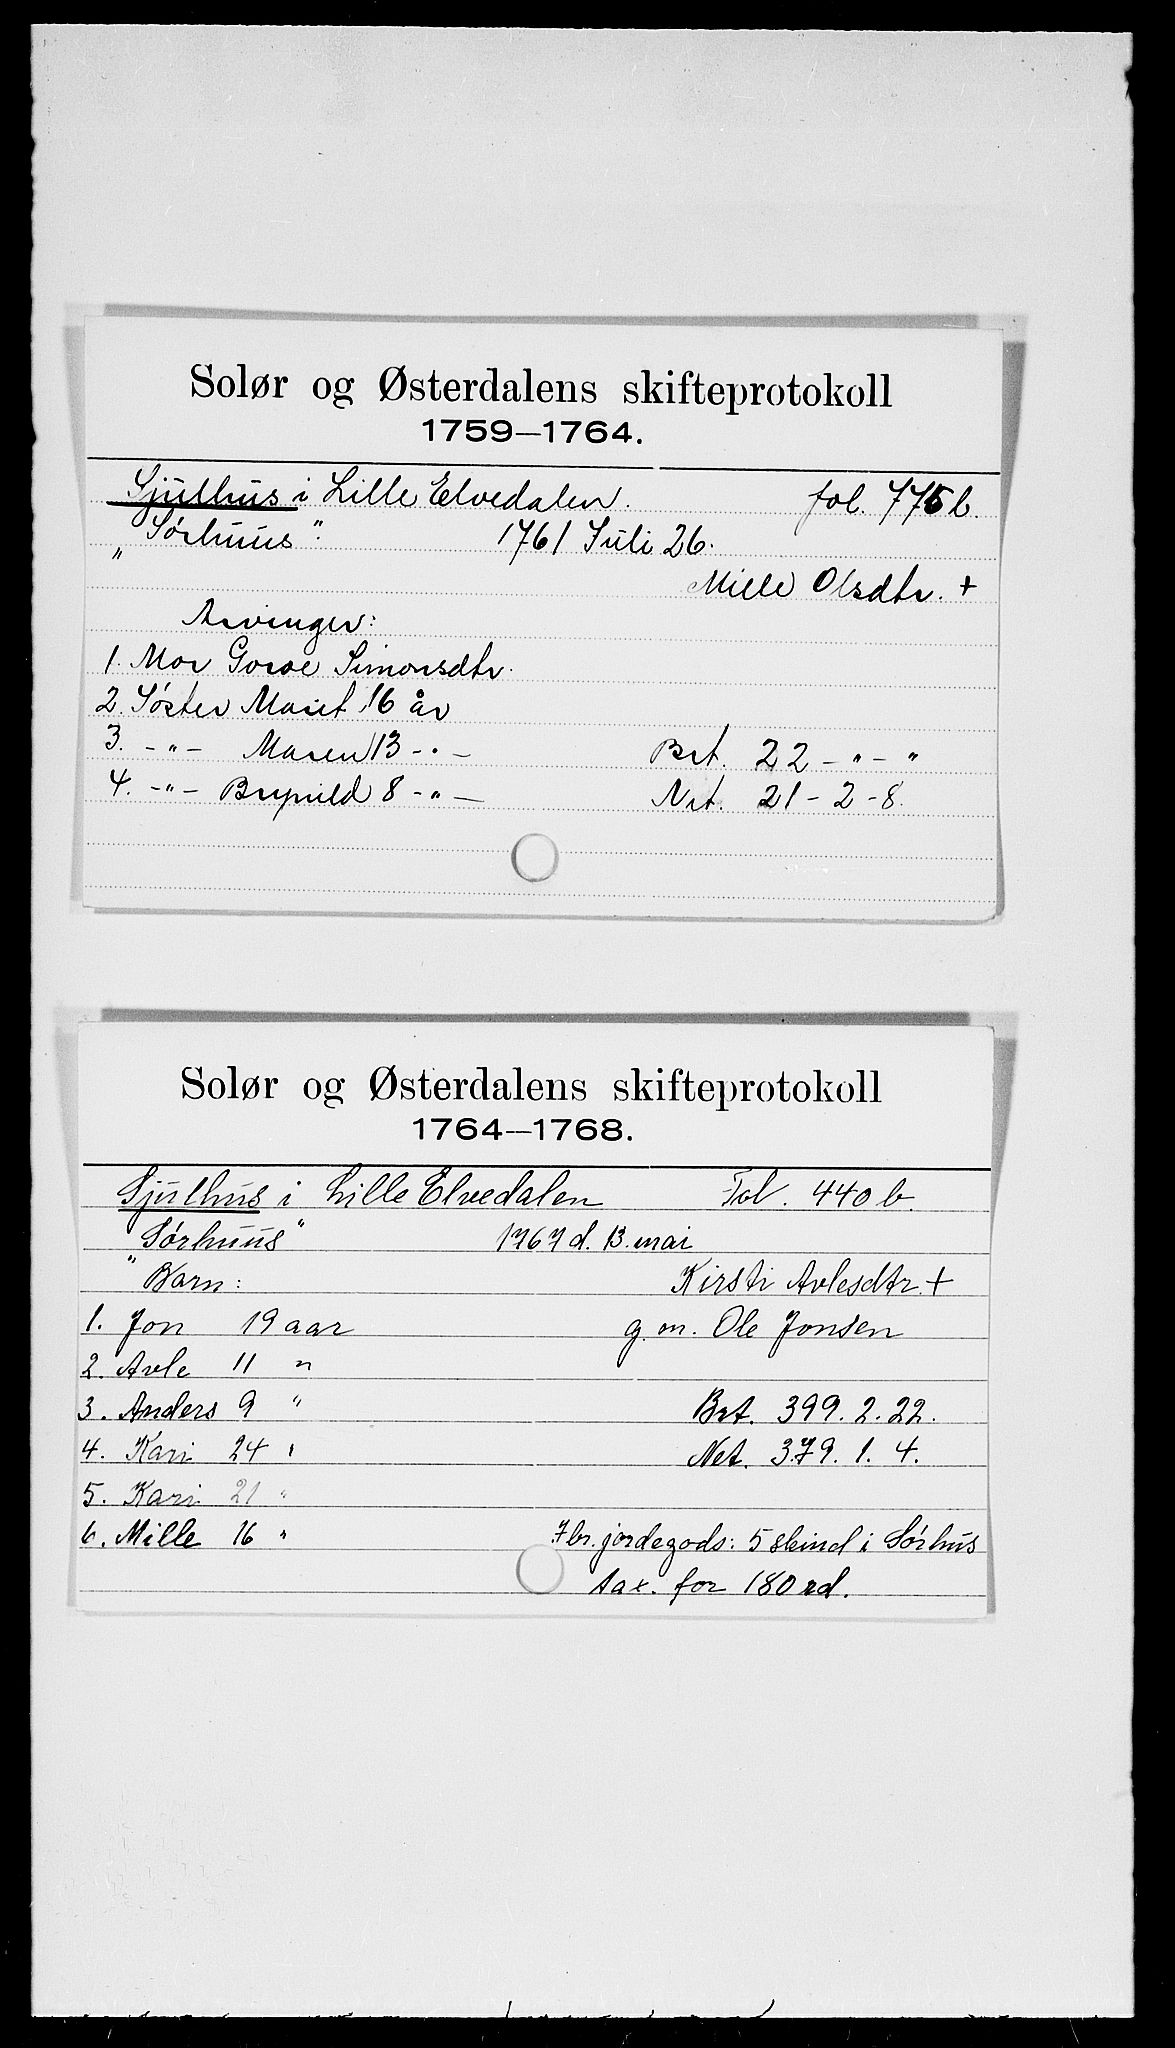 Solør og Østerdalens skifteprotokoll
1759—1764.
Sjulhus i Lille Elvedalen. fol. 775 b.
„Sørhuus“. 1761 Juli 26.
Mille Olsdtr. +
Arvinger:
1. Mor Goroe Simonsdtr.
2. Søster Marit 16 år
3. -"- Maren 13 -"- Brt. 22 - " - "
4. -"- Brynild 8 -"- Nrt. 21 - 2 - 8.
Solør og Østerdalens skifteprotokoll
1764—1768.
Sjulhus i Lille Elvedalen Fol. 440 b.
„Sørhuus“ 1767 d. 13. mai
Barn: Kirsti Avlesdtr. +
1. Jon 19 aar g. m. Ole Jonsen
2. Avle 11 "
3. Anders 9 " Brt. 399. 2. 22.
4. Kari 24 " Net. 379. 1. 4.
5. Kari 21 "
6. Mille 16 " Fbr. jordegods: 5 skind i Sørhus
tax. for 180 rd.